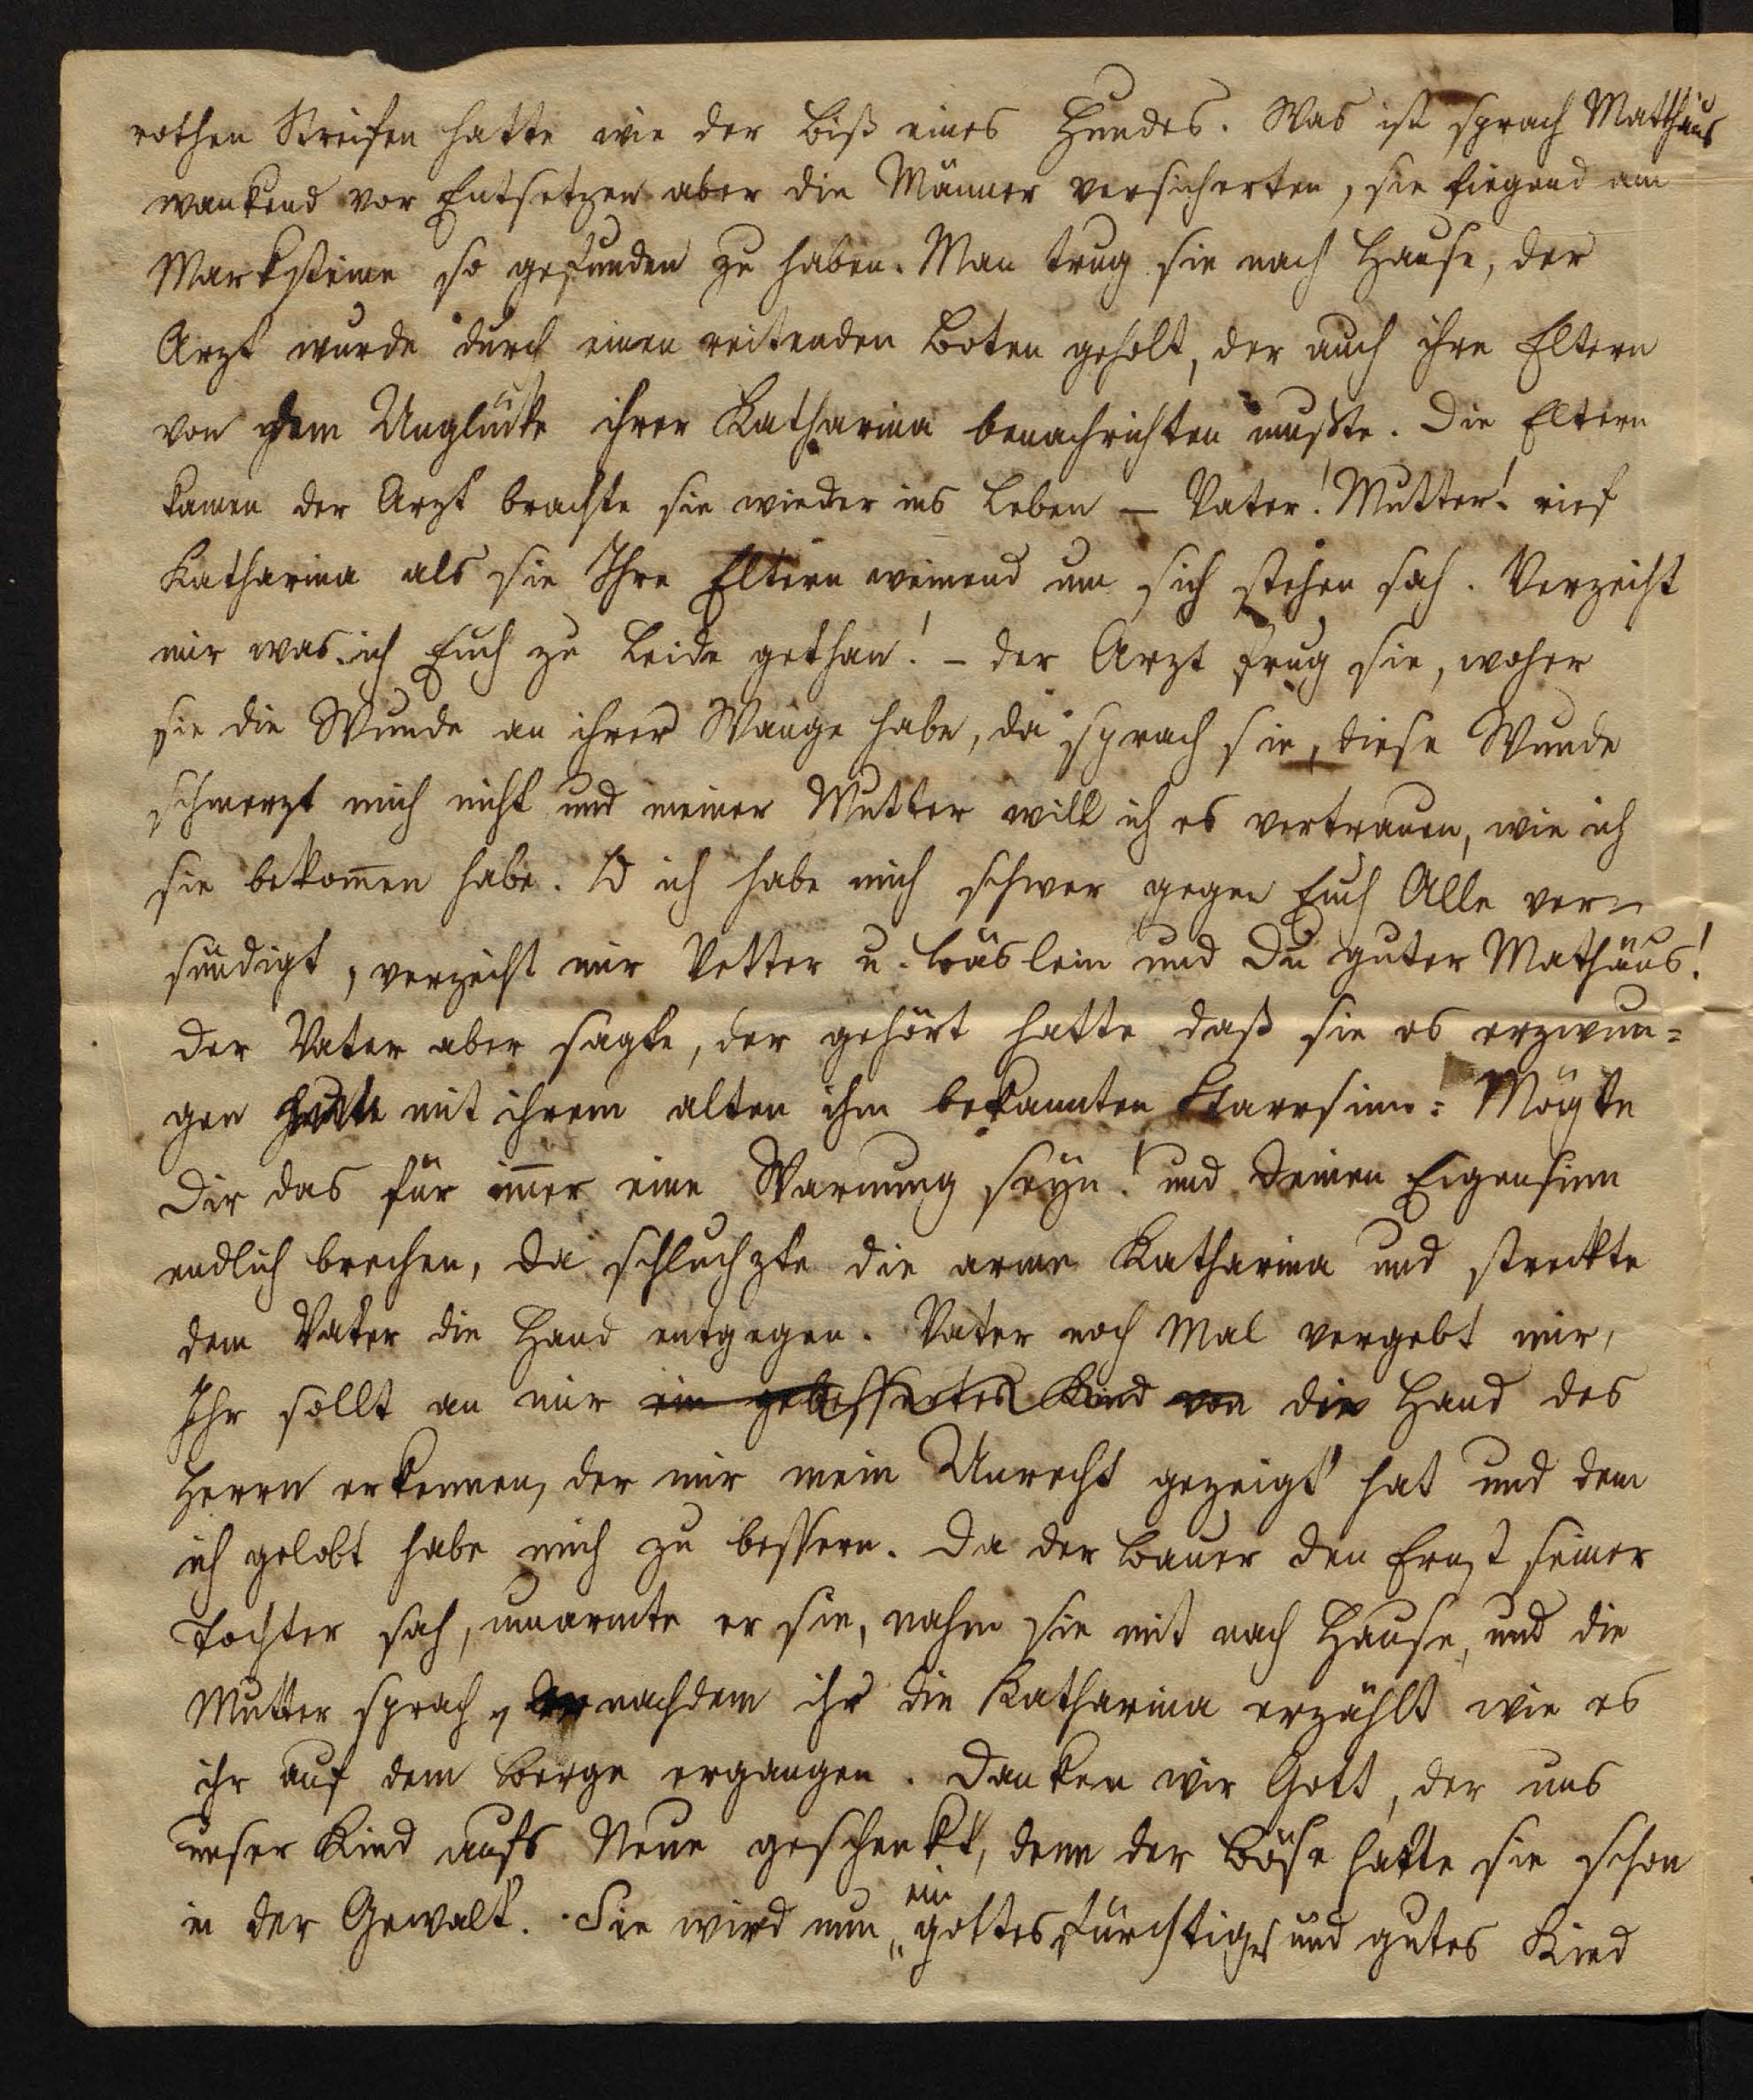 rothen Streifen hatte wie der Biß eines Hundes. Was ist sprach Matthäus
wankend vor Entsetzen aber die Männer versicherten, sie liegend am
Markstein so gefunden zu haben. Man trug sie nach Hause, der
Arzt wurde durch einen reitenden Boten geholt, der auch ihre Eltern
von dem Unglücke ihrer Katharina benachrichten mußte. Die Eltern
kamen der Arzt brachte sie wieder ins Leben – Vater! Mutter! rief
Katharina als sie Ihre Eltern weinend um sich stehen sah. Verzeiht
mir was ich Euch zu Leide gethan! – der Arzt frug sie, woher
sie die Wunde an ihrer Wange habe, da sprach sie, diese Wunde
schmerzt mich nicht und meiner Mutter will ich es vertrauen, wie ich
sie bekom̄en habe. O ich habe mich schwer gegen Euch Alle ver-
sündigt, verzeiht mir Vetter u. Bäslein und Du guter Mathäus!
Der Vater aber sagte, der gehört hatte daß sie es erzwun=
gen hatte mit ihrem alten ihm bekannten Starrsinn: Mögte
Dir das für im̄er eine Warnung seyn! und Deinen Eigensinn
endlich brechen, da schluchzte die arme Katharina und streckte
dem Vater die Hand entgegen. Vater noch Mal vergebt mir,
Ihr sollt an mir ein gebessertes Kind von die Hand des
Herrn erkennen, der mir mein Unrecht gezeigt hat und dem
ich gelobt habe mich zu bessern. Da der Bauer den Ernst seiner
Tochter sah, umarmte er sie, nahm sie mit nach Hause, und die
Mutter sprach, nachdem ihr die Katharina erzählt wie es
ihr auf dem Berge ergangen. Danken wir Gott, der uns
unser Kind aufs Neue geschenkt, denn der Böse hatte sie schon
in der Gewalt. Sie wird nun ein gottesfürchtiges und gutes Kind